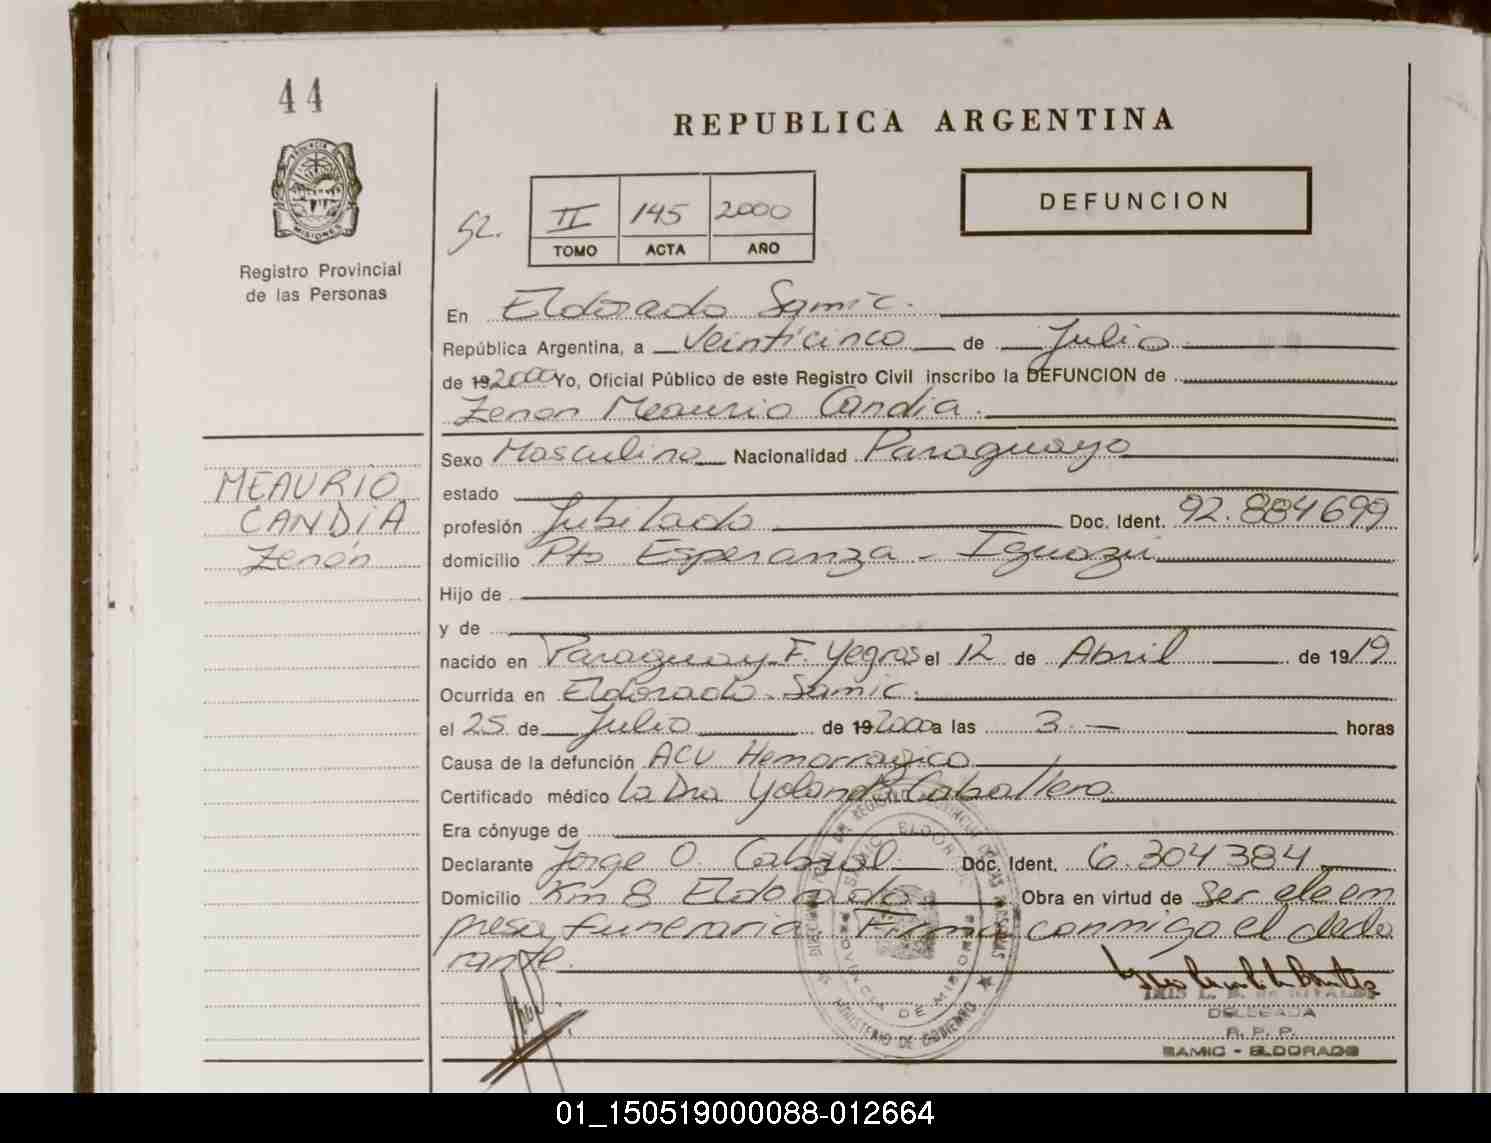 44
REPUBLICA ARGENTINA
PROVINCIA
MISIONES
Registro Provincial
de las Personas
DEFUNCION
II 145 2000
TOMO ACTA AÑO
En Eldorado Samic.
República Argentina, a Veinticinco de Julio
de 19 2000 Yo, Oficial Público de este Registro Civil inscribo la DEFUNCION de
Zenon Meaurio Candia.
MEAURIO
CANDIA
Zenón
Sexo Masculino Nacionalidad Paraguayo
estado
profesión Jubilado Doc. Ident. 92.884699
domicilio Pto Esperanza - Iguazu
Hijo de
y de
nacido en Paraguay F. Yegros el 12 de Abril de 1919
Ocurrida en Eldorado-Samic.
el 25 de Julio de 19 2000 a las 3.- horas
Causa de la defunción ACV Hemorragico
Certificado médico La Dra Yolanda Caballero.
Era cónyuge de
Declarante Jorge O. Cabral Doc. Ident. 6.304384
Domicilio Km 8 Eldorado Obra en virtud de ser de em
presa funeraria. Firma conmigo el decla
rante.
DELEGADA
R. P. P.
SAMIC - ELDORADO
PROVINCIA DE MISIONES
MINISTERIO DE GOBIERNO
01_150519000088-012664